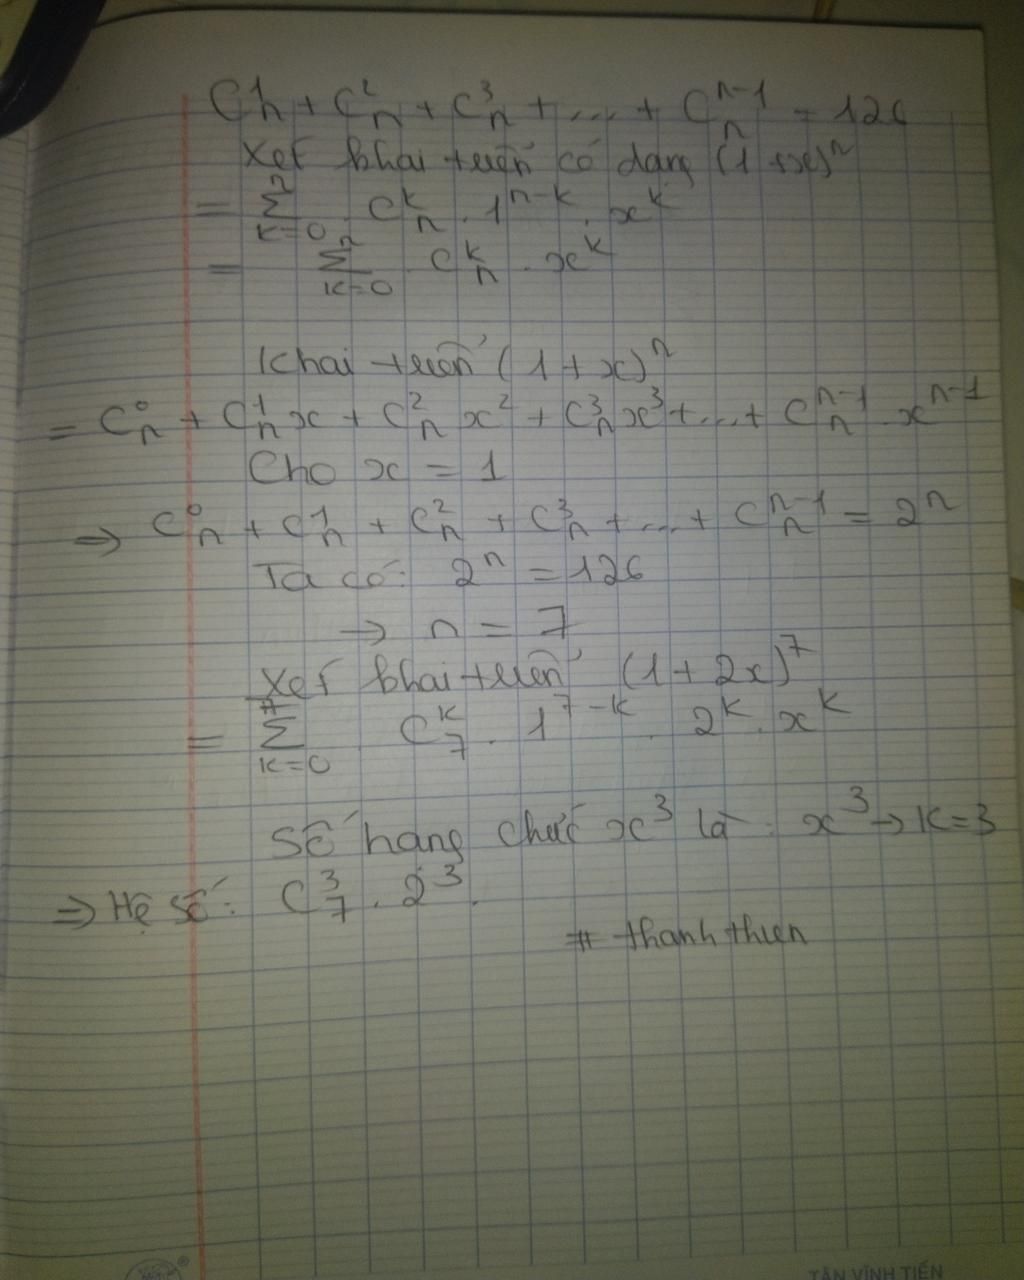 C¹ₙ + C²ₙ + C³ₙ + ... + Cₙⁿ⁻¹ = 126
Xét khai triển có dạng (1 + x)ⁿ
= Σⁿₖ₌₀ Cᵏₙ . 1ⁿ⁻ᵏ . xᵏ
= Σⁿₖ₌₀ Cᵏₙ . xᵏ
Khai triển (1 + x)ⁿ
= C⁰ₙ + C¹ₙx + C²ₙ x² + C³ₙx³ + ... + Cₙⁿ⁻¹ xⁿ⁻¹
Cho x = 1
⇒ C⁰ₙ + C¹ₙ + C²ₙ + C³ₙ + ... + Cₙⁿ⁻¹ = 2ⁿ
Ta có: 2ⁿ = 126
→ n = 7
Xét khai triển (1 + 2x)⁷
= Σ⁷ₖ₌₀ Cᵏ₇ . 1⁷⁻ᵏ . 2ᵏ . xᵏ
Số hạng chứa x³ là : x³ → k = 3
⇒ Hệ số : C³₇ . 2³.
# thanhthien
TÂN VĨNH TIẾN